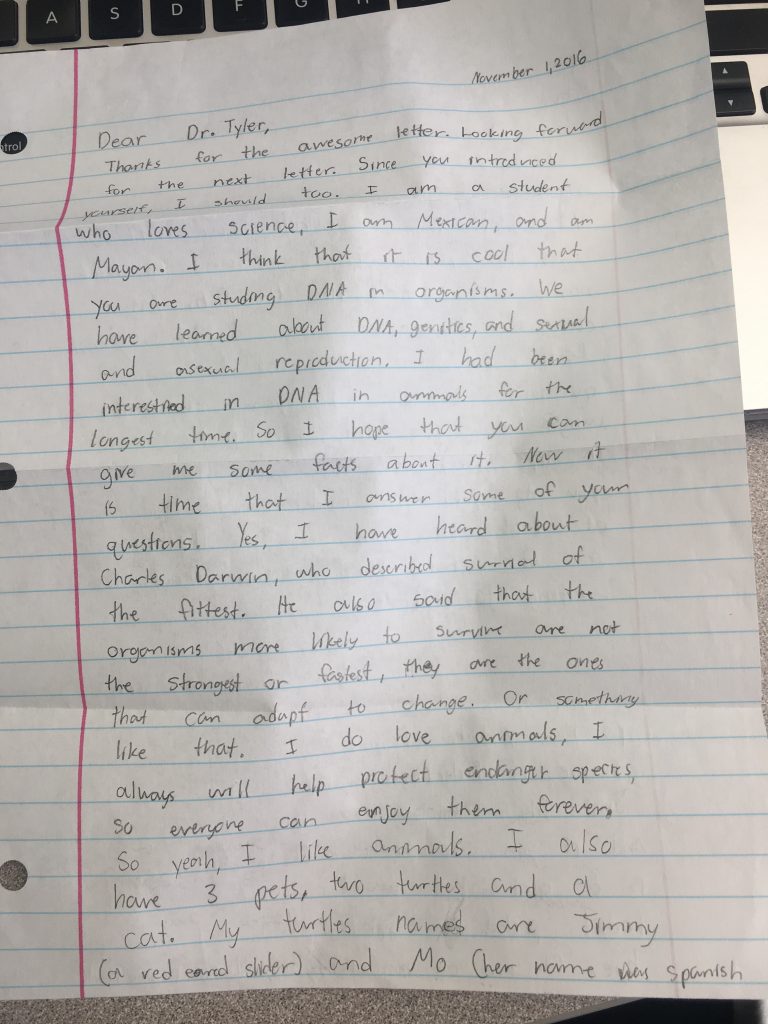 A S D F G H
trol
November 1, 2016
Dear Dr. Tyler,
Thanks for the awesome letter. Looking forward
for the next letter. Since you introduced
yourself, I should too. I am a student
who loves science, I am Mexican, and am
Mayan. I think that it is cool that
you are studing DNA in organisms. We
have learned about DNA, genetics, and sexual
and asexual reproduction. I had been
interestned in DNA in animals for the
longest time. So I hope that you can
give me some facts about it. Now it
is time that I answer some of your
questions. Yes, I have heard about
Charles Darwin, who described survial of
the fittest. He also said that the
organisms more likely to survive are not
the strongest or fastest, they are the ones
that can adapt to change. Or something
like that. I do love animals, I
always will help protect endanger species,
so everyone can enjoy them forever.
So yeah, I like animals. I also
have 3 pets, two turtles and a
cat. My turtles names are Jimmy
(a red eared slider) and Mo (her name was spanish